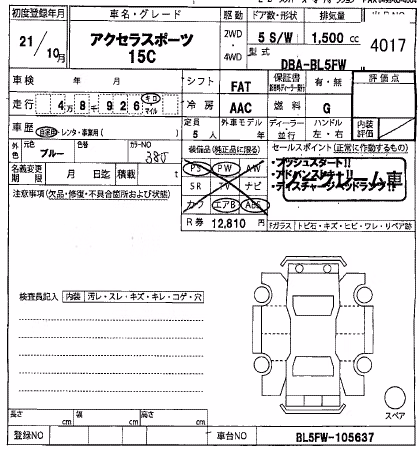 初度登録年月
車名・グレード
駆動
ドア数・形状
排気量
21/10月
アクセラスポーツ
15C
2WD
・
4WD
5 S/W
1,500 cc
型式
DBA-BL5FW
4017
車検
年 月
シフト
FAT
保証書
有・無
評価点
走行
4万8千926 キロ マイル
冷房
AAC
燃料
G
車歴
自家用・レンタ・事業用( )
定員
5人
外車モデル
年
ディーラー
・
並行
ハンドル
左・右
内装
評価
外色
元色
ブルー
色替
カラーNO
38J
装備品(純正品に限る)
セールスポイント(正常に作動するもの)
名義変更
期限
月 日迄
積載
PS PW AW
SR TV ナビ
カワ エアB ABS
・プッシュスタート!!
・アドバンスキー!!
・ディスチャージヘッドランプ!!
注意事項(欠品・修復・不具合箇所および状態)
R券 12,810 円
Fガラス
トビ石・キズ・ヒビ・ワレ・リペア跡
検査員記入
内装
汚レ・スレ・キズ・キレ・コゲ・穴
スペア
長さ cm
幅 cm
高さ cm
登録NO
車台NO
BL5FW-105637